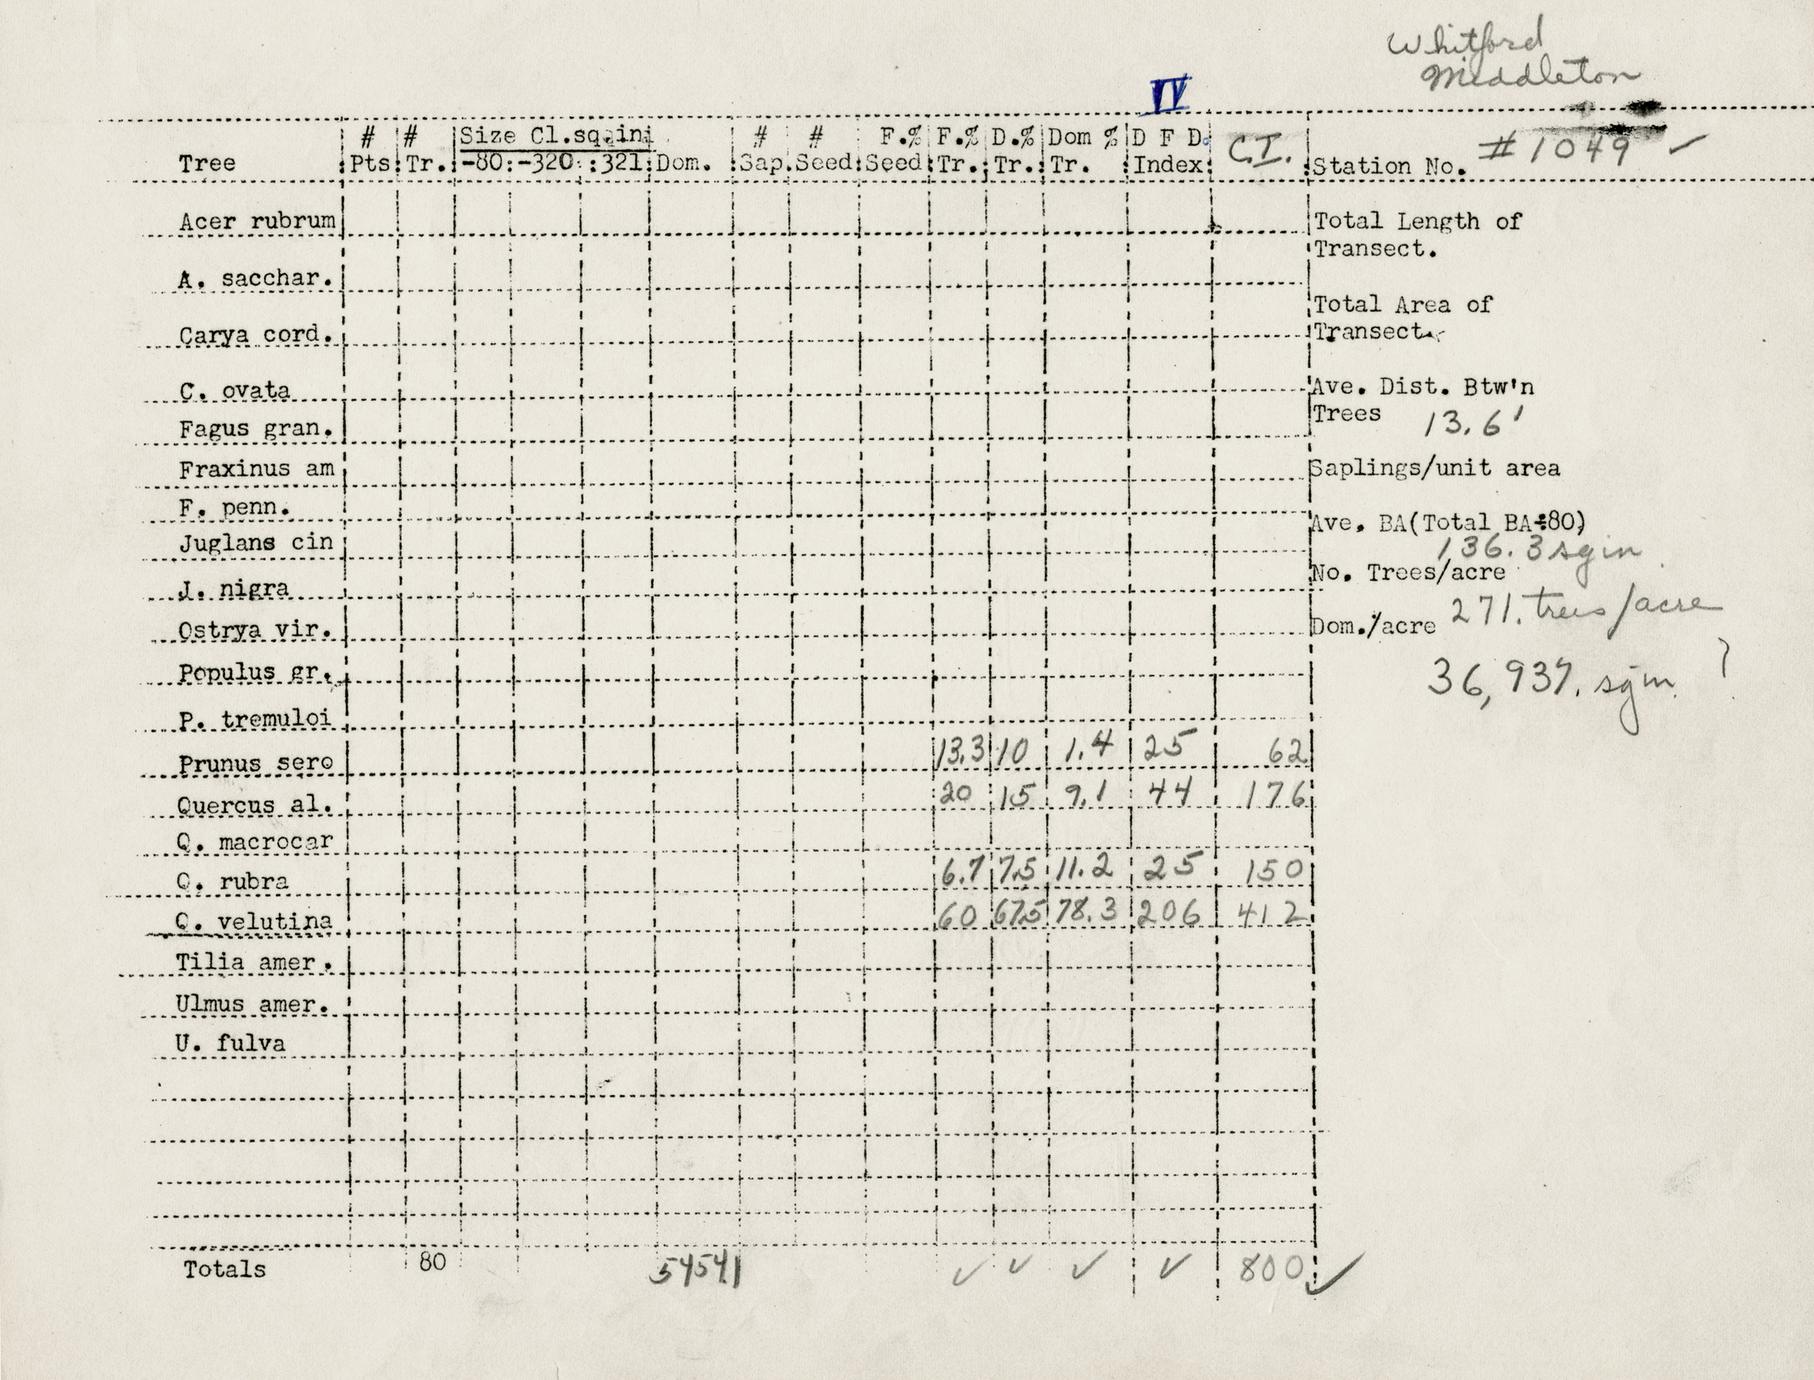 Whitford
Middleton
IV
Tree # Pts. # Tr. Size Cl.sq.in. -80 -320 321 Dom. # Sap. # Seed F.% Seed F.% Tr. D.% Tr. Dom % Tr. D F D Index C.I. Station No. #1049 ✓
Acer rubrum
A. sacchar.
Carya cord.
C. ovata
Fagus gran.
Fraxinus am
F. penn.
Juglans cin
J. nigra
Ostrya vir.
Populus gr.
P. tremuloi
Prunus sero 13.3 10 1.4 25 62
Quercus al. 20 15 9.1 44 176
Q. macrocar
Q. rubra 6.7 7.5 11.2 25 150
Q. velutina 60 67.5 78.3 206 412
Tilia amer.
Ulmus amer.
U. fulva
Totals 80 54541 ✓ ✓ ✓ ✓ 800 ✓
Total Length of
Transect.
Total Area of
Transect.
Ave. Dist. Btw'n
Trees 13.6'
Saplings/unit area
Ave. BA(Total BA÷80)
136.3 sq in
No. Trees/acre
271. trees/acre
Dom./acre
36,937. sq in. ?